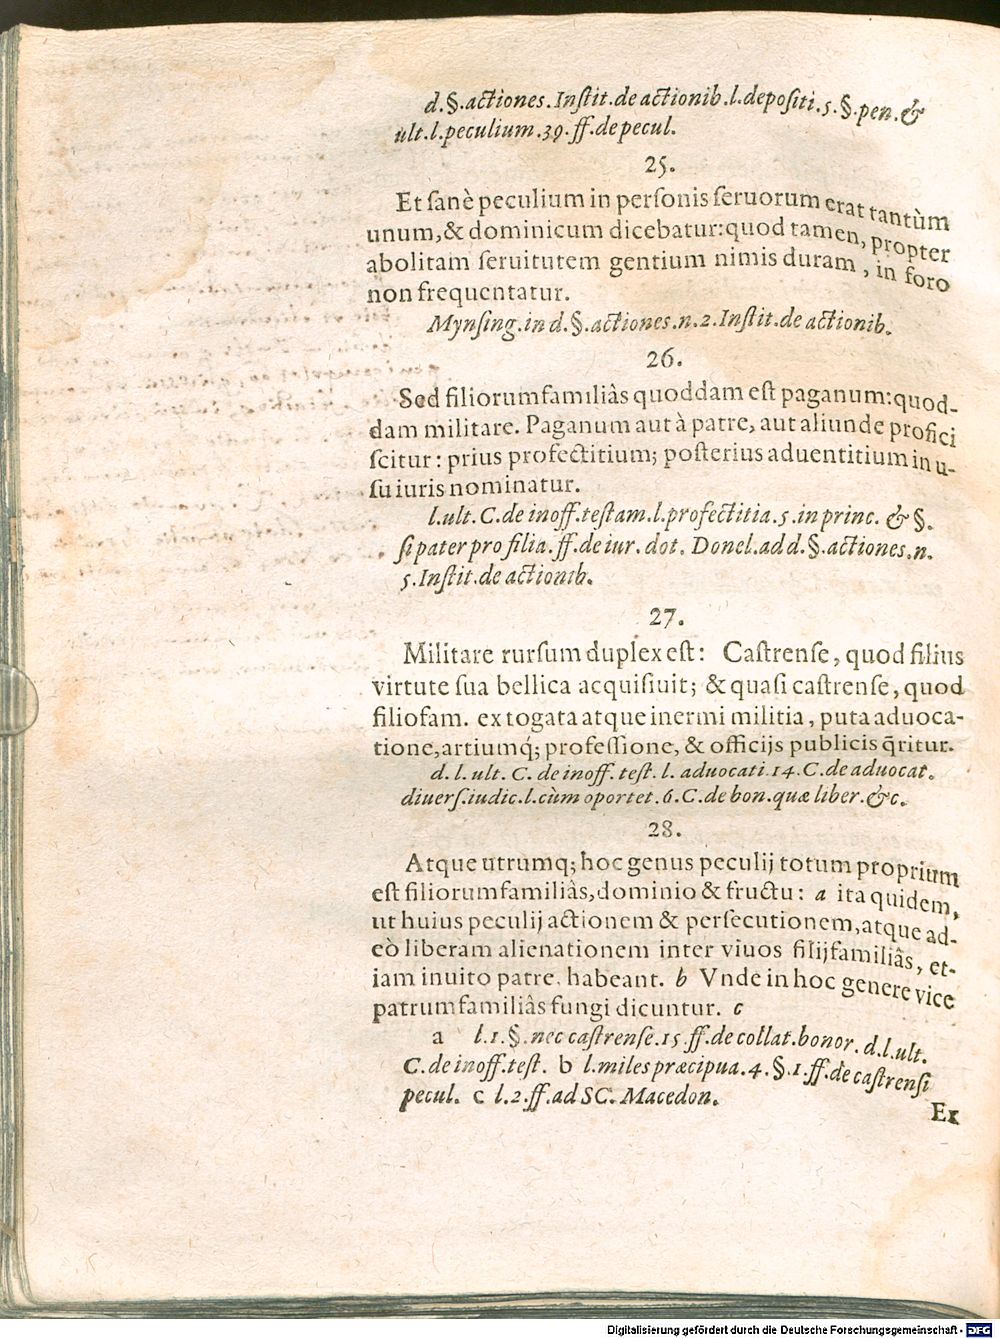 d.§.actiones. Instit.de actionib.l.depositi.5.§.pen.&
ult.l.peculium.39.ff.de pecul.
25.
Et sanè peculium in personis seruorum erat tantùm
unum,& dominicum dicebatur:quod tamen, propter
abolitam seruitutem gentium nimis duram, in foro
non frequentatur.
Mynsing.in d.§.actiones.n.2.Instit.de actionib.
26.
Sed filiorumfamiliâs quoddam est paganum:quod-
dam militare. Paganum aut à patre, aut aliunde profici
scitur: prius profectitium; posterius aduentitium in u-
su iuris nominatur.
l.ult. C.de inoff.testam.l.profectitia.5.in princ. & §.
si pater pro filia.ff.de iur. dot. Donel.ad d.§.actiones.n.
5.Instit.de actionib.
27.
Militare rursum duplex est: Castrense, quod filius
virtute sua bellica acquisiuit; & quasi castrense, quod
filiofam. ex togata atque inermi militia, puta aduoca-
tione,artiumq́; professione, & officijs publicis q̃ritur.
d. l. ult. C. de inoff. test. l. aduocati.14.C.de aduocat.
diuers.iudic.l.cùm oportet.6.C.de bon.quæ liber.&c.
28.
Atque utrumq; hoc genus peculij totum proprium
est filiorumfamiliâs,dominio & fructu: a ita quidem,
ut huius peculij actionem & persecutionem,atque ad-
eò liberam alienationem inter viuos filijfamiliâs, et-
iam inuito patre, habeant. b Vnde in hoc genere vice
patrumfamiliâs fungi dicuntur. c
a l.1.§.nec castrense.15.ff.de collat.bonor. d.l.ult.
C.de inoff.test. b l.miles præcipua.4.§.1.ff.de castrensi
pecul. c l.2.ff.ad SC. Macedon.
Ex
Digitalisierung gefördert durch die Deutsche Forschungsgemeinschaft - DFG